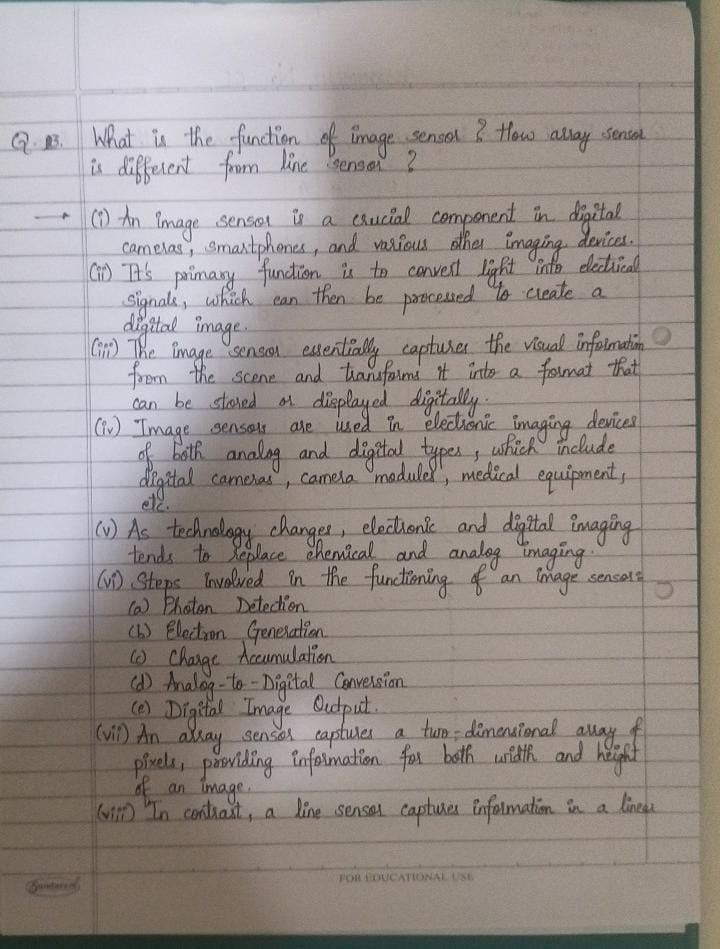 Q. 13. What is the function of image sensor ? How array sensor
is different from line sensor ?
→ (i) An image sensor is a crucial component in digital
cameras, smartphones, and various other imaging devices.
(ii) It's primary function is to convert light into electrical
signals, which can then be processed to create a
digital image.
(iii) The image sensor essentially captures the visual information
from the scene and transforms it into a format that
can be stored or displayed digitally.
(iv) Image sensors are used in electronic imaging devices
of both analog and digital types, which include
digital cameras, camera modules, medical equipment,
etc.
(v) As technology changes, electronic and digital imaging
tends to replace chemical and analog imaging.
(vi) Steps involved in the functioning of an image sensor:
(a) Photon Detection
(b) Electron Generation
(c) Charge Accumulation
(d) Analog-to-Digital Conversion
(e) Digital Image Output.
(vii) An array sensor captures a two-dimensional array of
pixels, providing information for both width and height
of an image.
(viii) In contrast, a line sensor captures information in a linear
Sundaram
FOR EDUCATIONAL USE